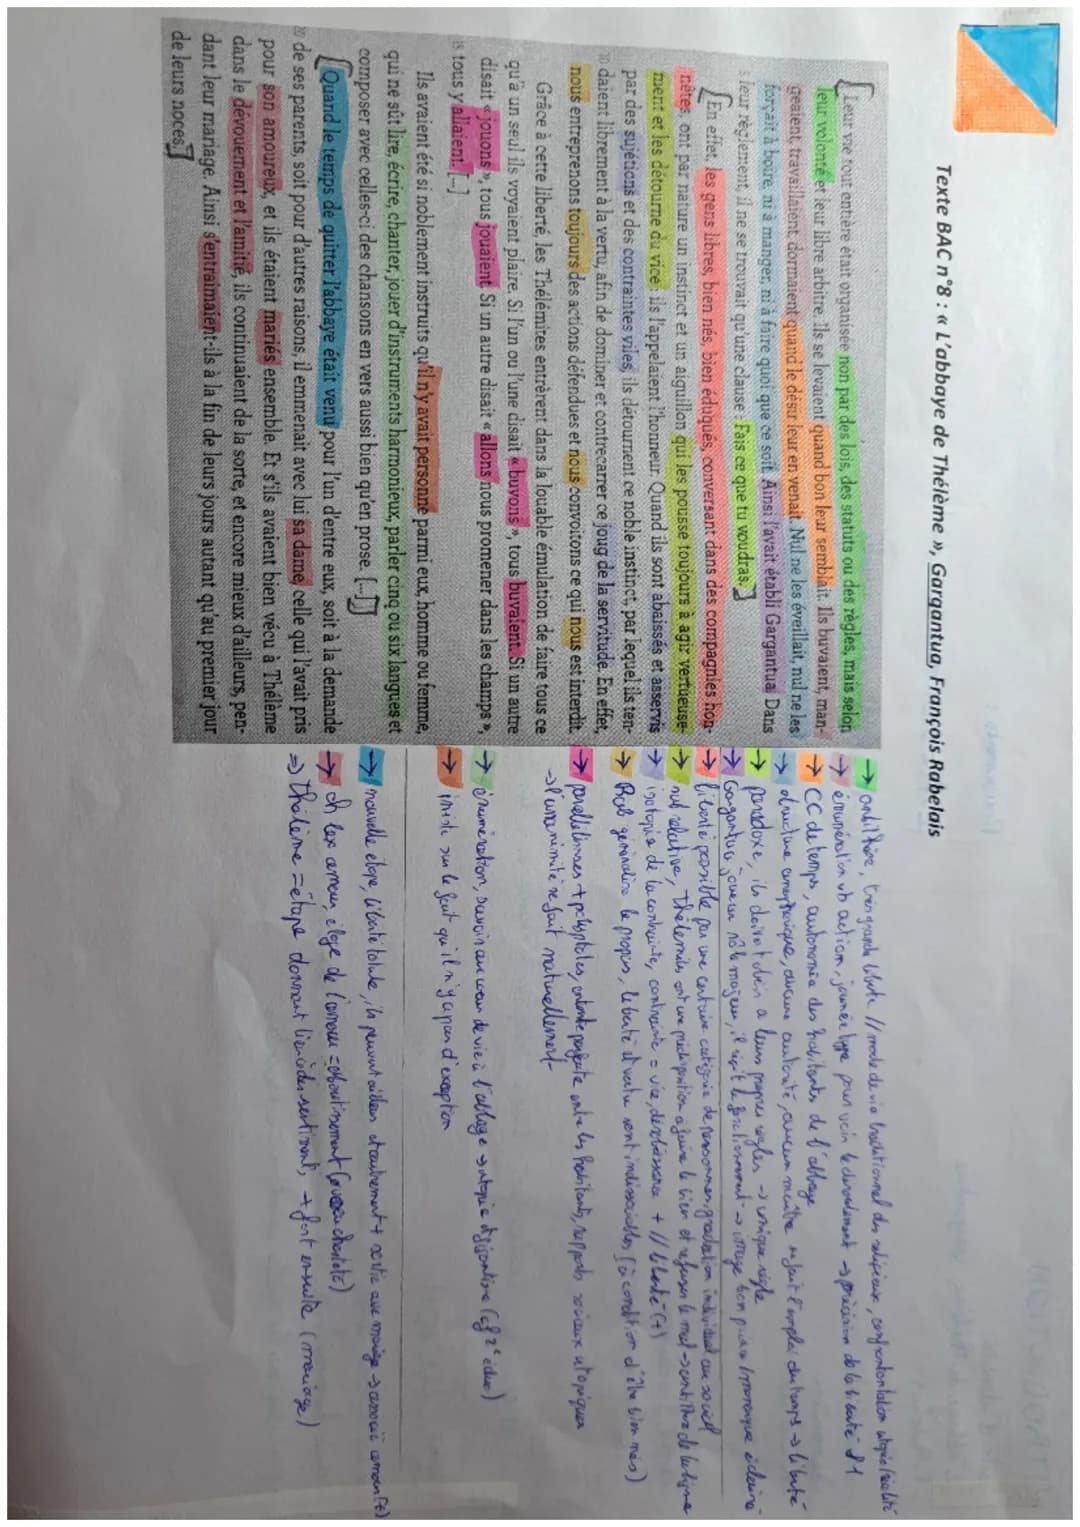 Texte BAC n°8 : « L'abbaye de Thélème », Gargantua, François Rabelais
[Leur vie tout entière était organisée non par des lois, des statuts ou des règles, mais selon
leur volonté et leur libre arbitre. Ils se levaient quand bon leur semblait. Ils buvaient, man-
geaient, travaillaient, dormaient quand le désir leur en venait. Nul ne les éveillait, nul ne les
forçait à boire, ni à manger, ni à faire quoi que ce soit. Ainsi l'avait établi Gargantua. Dans
5 leur règlement, il ne se trouvait qu'une clause : Fais ce que tu voudras.]
[En effet, les gens libres, bien nés, bien éduqués, conversant dans des compagnies hon-
nêtes, ont par nature un instinct et un aiguillon qui les pousse toujours à agir vertueuse-
ment et les détourne du vice ; ils l'appelaient l'honneur. Quand ils sont abaissés et asservis
par des sujétions et des contraintes viles, ils détournent ce noble instinct, par lequel ils ten-
10 daient librement à la vertu, afin de dominer et contrecarrer ce joug de la servitude. En effet,
nous entreprenons toujours des actions défendues et nous convoitons ce qui nous est interdit.
Grâce à cette liberté, les Thélémites entrèrent dans la louable émulation de faire tous ce
qu'à un seul ils voyaient plaire. Si l'un ou l'une disait « buvons », tous buvaient. Si un autre
disait « jouons », tous jouaient. Si un autre disait « allons nous promener dans les champs »,
15 tous y allaient. [...]
Ils avaient été si noblement instruits qu'il n'y avait personne parmi eux, homme ou femme,
qui ne sût lire, écrire, chanter, jouer d'instruments harmonieux, parler cinq ou six langues et
composer avec celles-ci des chansons en vers aussi bien qu'en prose. [...]]
[Quand le temps de quitter l'abbaye était venu pour l'un d'entre eux, soit à la demande
20 de ses parents, soit pour d'autres raisons, il emmenait avec lui sa dame, celle qui l'avait pris
pour son amoureux, et ils étaient mariés ensemble. Et s'ils avaient bien vécu à Thélème
dans le dévouement et l'amitié, ils continuaient de la sorte, et encore mieux d'ailleurs, pen-
dant leur mariage. Ainsi s'entraimaient-ils à la fin de leurs jours autant qu'au premier jour
de leurs noces.]
→ antithèse, très grande liberté // mode de vie traditionnel des religieux, confrontation utopie/réalité
→ énumération vb action, journée type pour voir le déroulement → précision de la liberté
→ CC de temps, autonomie des habitants de l'abbaye
→ structure anaphorique, aucune autorité, aucun maître, l'emploi du temps → liberté
→ paradoxe, ils doivent obéir à leurs propres règles → unique règle
→ Gargantua joue un rôle majeur, il régit le fonctionnement → image bon prince / monarque éclairé
→ liberté possible par une certaine catégorie de personnes, gradation individuel au social
→ relative, Thélémites ont une prédisposition à faire le bien et refuser le mal → antithèse
→ isotopie de la contrainte, contrainte = vice, désobéissance + // liberté (+)
→ Rab généralise le propos, liberté et vertu sont indissociables (à condition d'être bien nés)
→ parallélismes + polyptotes, entente parfaite entre les habitants, rapports sociaux utopiques
→ l'unanimité se fait naturellement
→ énumération, savoir au cœur de vie à l'abbaye → utopie
→ insiste sur le fait qu'il n'y a pas d'exception
→ nouvelle étape, liberté totale, ils peuvent aller + sortie avec mariage → associé amour (+)
→ ch lex amour, éloge de l'amour = aboutissement
⇒ Thélème = étape donnant lieu à des sentiments, + fort ensuite (mariage)